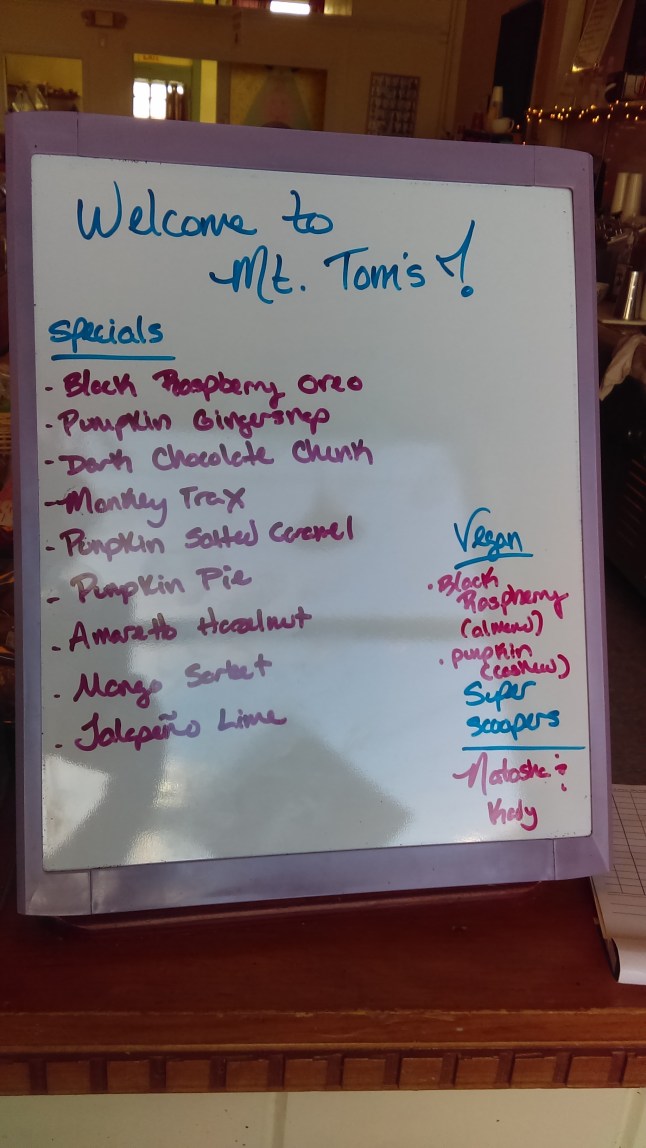 Welcome to
Mt. Tom's!
Specials
- Black Raspberry Oreo
- Pumpkin Gingersnap
- Dark Chocolate Chunk
- Monkey Trax
- Pumpkin Salted Caramel
- Pumpkin Pie
- Amaretto Hazelnut
- Mango Sorbet
- Jalapeño Lime
Vegan
• Black
Raspberry
(almond)
• pumpkin
(cashew)
Super
Scoopers
Natasha &
Kady